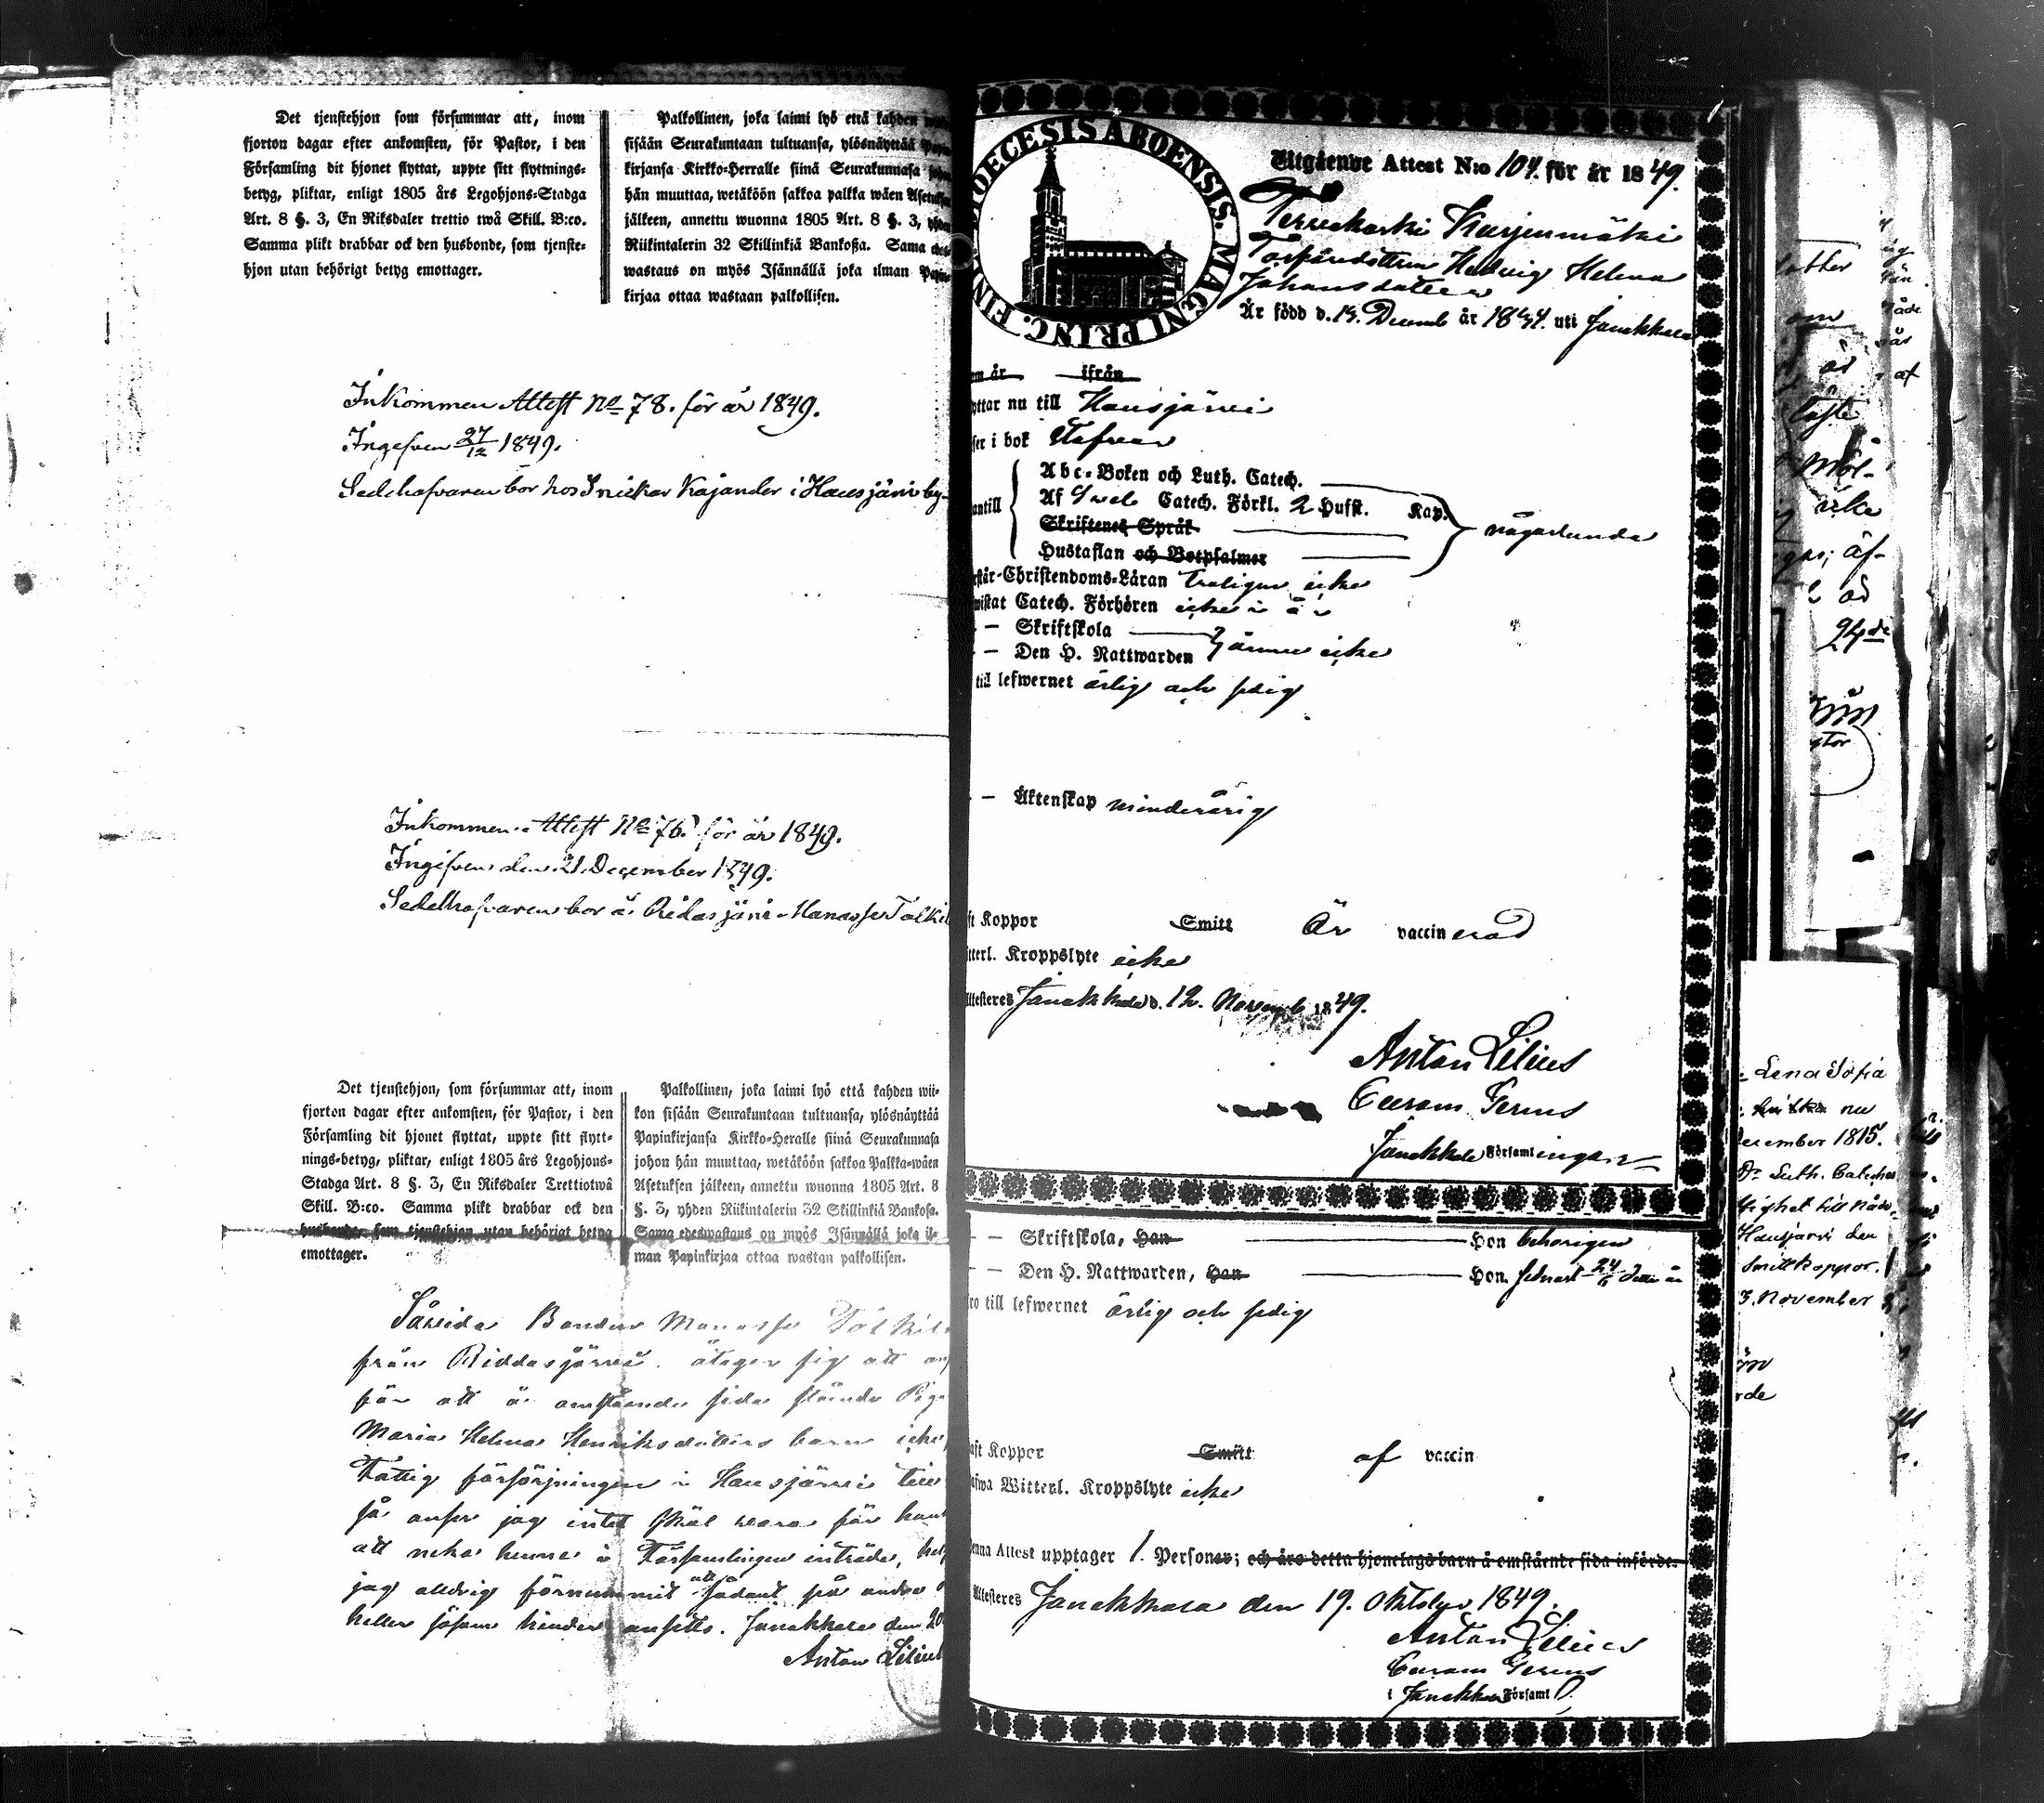 Det tjenstehjon som försummar att, inom
fjorton dagar efter ankomsten, för Pastor, i den
Församling dit hjonet flyttat, uppte sitt flyttnings-
betyg, pliktar, enligt 1805 års Legohjons-Stadga
Art. 8 §. 3, En Riksdaler trettio två Skill. B:co.
Samma plikt drabbar ock den husbonde, som tjenste-
hjon utan behörigt betyg emottager.
Palkollinen, joka laimi lyö että kahden
sisään Seurakuntaan tultuansa, ylösnäyttää
kirjansa Kirkko-Herralle siinä Seurakunnasa
hän muuttaa, wetäköön sakkoa palkka wäen Asetuksen
jälkeen, annettu wuonna 1805 Art. 8 §. 3, yhden
Riikintalerin 32 Skillinkiä Bankoßa. Sama
wastaus on myös Isännällä joka ilman
kirjaa ottaa wastaan palkollisen.
Inkommen Attest No 78. för år 1849.
Ingifven 27/12 1849.
Sedelhafvaren bor hos Snickar Kajander i Hausjärvi by
Inkommen Attest No 76 för år 1849.
Ingifven den 21 December 1849.
Sedelhafvaren bor i Ridasjärvi Manasse Tolkil
Det tjenstehjon, som försummar att, inom
fjorton dagar efter ankomsten, för Pastor, i den
Församling dit hjonet flyttat, uppte sitt flytt-
nings-betyg, pliktar, enligt 1805 års Legohjons-
Stadga Art. 8 §. 3, En Riksdaler Trettiotwå
Skill. B:co. Samma plikt drabbar ock den
husbonde, som tjenstehjon utan behörigt betyg
emottager.
Palkollinen, joka laimi lyö että kahden wii-
kon sisään Seurakuntaan tultuansa, ylösnäyttää
Papinkirjansa Kirkko-Heralle siinä Seurakunnasa
johon hän muuttaa, wetäköön sakkoa Palkka-wäen
Asetuksen jälkeen, annettu wuonna 1805 Art. 8
§. 3, yhden Riikintalerin 32 Skillinkiä Bankosa.
Sama edeswastaus on myös Isännällä joka il-
man Papinkirjaa ottaa wastan palkollisen.
Såvida Bonden Manasse Tolkil
från Riddasjärvi åtager sig att
för att å omstående sida stående Piga
Maria Helena Henriksdotters barn icke
Fattig försörjningen i Hausjärvi
så anser jag intet skäl vara för
att neka henne i Församlingen inträde,
jag aldrig förnummit att sådant på andra
heller såsom hinder ansetts. Janakkala den 20
Anton Lilius
DIOECESIS ABOENSIS. MAGNI PRINC. FINL.
Utgående Attest N:o 104. för år 1849.
Terrenkoski Harjunmäki
Torpardottren Hedvig Helena
Johansdotter
Är född d. 15. Decemb år 1834. uti Janakkala
om år ifrån
yttar nu till Hausjärvi
ser i bok Stafvar
antill
Abc-Boken och Luth. Catech.
Af Sveb Catech. Förkl. 2 Hufst. Kap.
Skriftenes Språk
Hustaflan och Botpsalmer
någorlunda
rstår Christendoms-Läran troligen icke
wistat Catech. Förhören icke i år
— Skriftskola
— Den H. Nattwarden ännu icke
till lefwernet ärlig och sedig
— Äktenskap minderårig
ft Koppor Smitt Är vaccinerad
itterl. Kroppslyte icke
Attesteres Janakkala d. 12. Novemb 1849.
Anton Lilius
Curam Gerens
Janakkala Församlingar
— Skriftskola, Han Hon behörigen
— Den H. Nattwarden, Han Hon senast 24/6 detta år
ro till lefwernet ärlig och sedig
aft Koppor Smitt af vaccin
afwa Witterl. Kroppslyte icke
enna Attest upptager 1. Personer; och äro detta hjonelags barn å omstående sida införde.
Attesteres Janakkala den 19. Oktober 1849.
Anton Lilius
Curam Gerens
i Janakkala Församl
24de
Lena Sofia
nu
December 1815.
Luth. Catech
Hausjärvi den
Smittkoppor.
3. November